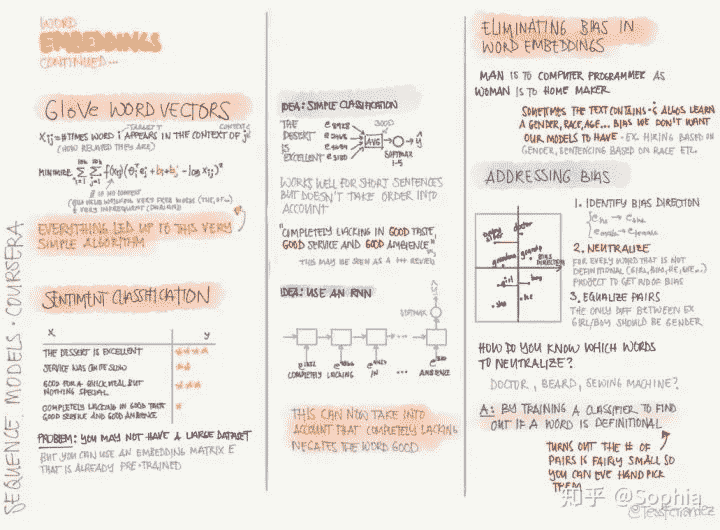 WORD
EMBEDDINGS
CONTINUED...
GloVe WORD VECTORS
Xij = # TIMES WORD i APPEARS IN THE CONTEXT OF j
(HOW RELATED THEY ARE)
MINIMIZE
EVERYTHING LED UP TO THIS VERY
SIMPLE ALGORITHM
SENTIMENT CLASSIFICATION
X y
THE DESSERT IS EXCELLENT
SERVICE WAS QUITE SLOW
GOOD FOR A QUICK MEAL BUT
NOTHING SPECIAL
COMPLETELY LACKING IN GOOD TASTE
GOOD SERVICE AND GOOD AMBIENCE
PROBLEM: YOU MAY NOT HAVE A LARGE DATASET
BUT YOU CAN USE AN EMBEDDING MATRIX E
THAT IS ALREADY PRE-TRAINED
SEQUENCE MODELS · COURSERA
IDEA: SIMPLE CLASSIFICATION
THE
DESSERT
IS
EXCELLENT
AVG
SOFTMAX
1-5
WORKS WELL FOR SHORT SENTENCES
BUT DOESN'T TAKE ORDER INTO
ACCOUNT
"COMPLETELY LACKING IN GOOD TASTE,
GOOD SERVICE AND GOOD AMBIENCE"
THIS MAY BE SEEN AS A +++ REVIEW
IDEA: USE AN RNN
SOFTMAX
COMPLETELY LACKING IN ... AMBIENCE
THIS CAN NOW TAKE INTO
ACCOUNT THAT COMPLETELY LACKING
NEGATES THE WORD GOOD
ELIMINATING BIAS IN
WORD EMBEDDINGS
MAN IS TO COMPUTER PROGRAMMER AS
WOMAN IS TO HOME MAKER
SOMETIMES THE TEXT CONTAINS & ALGOS LEARN
A GENDER, RACE, AGE... BIAS WE DON'T WANT
OUR MODELS TO HAVE · EX. HIRING BASED ON
GENDER, SENTENCING BASED ON RACE ETC.
ADDRESSING BIAS
doctor
grandma
grandpa
BIAS
DIRECTION
girl
boy
she
he
1. IDENTIFY BIAS DIRECTION
2. NEUTRALIZE
FOR EVERY WORD THAT IS NOT
DEFINITIONAL (GIRL, BOY, HE, SHE...)
PROJECT TO GET RID OF BIAS
3. EQUALIZE PAIRS
THE ONLY DIFF BETWEEN EX
GIRL/BOY SHOULD BE GENDER
HOW DO YOU KNOW WHICH WORDS
TO NEUTRALIZE?
DOCTOR, BEARD, SEWING MACHINE?
A: BY TRAINING A CLASSIFIER TO FIND
OUT IF A WORD IS DEFINITIONAL
TURNS OUT THE # OF
PAIRS IS FAIRLY SMALL SO
YOU CAN EVE HAND PICK
THEM
知乎 @Sophia
@TessFernandez